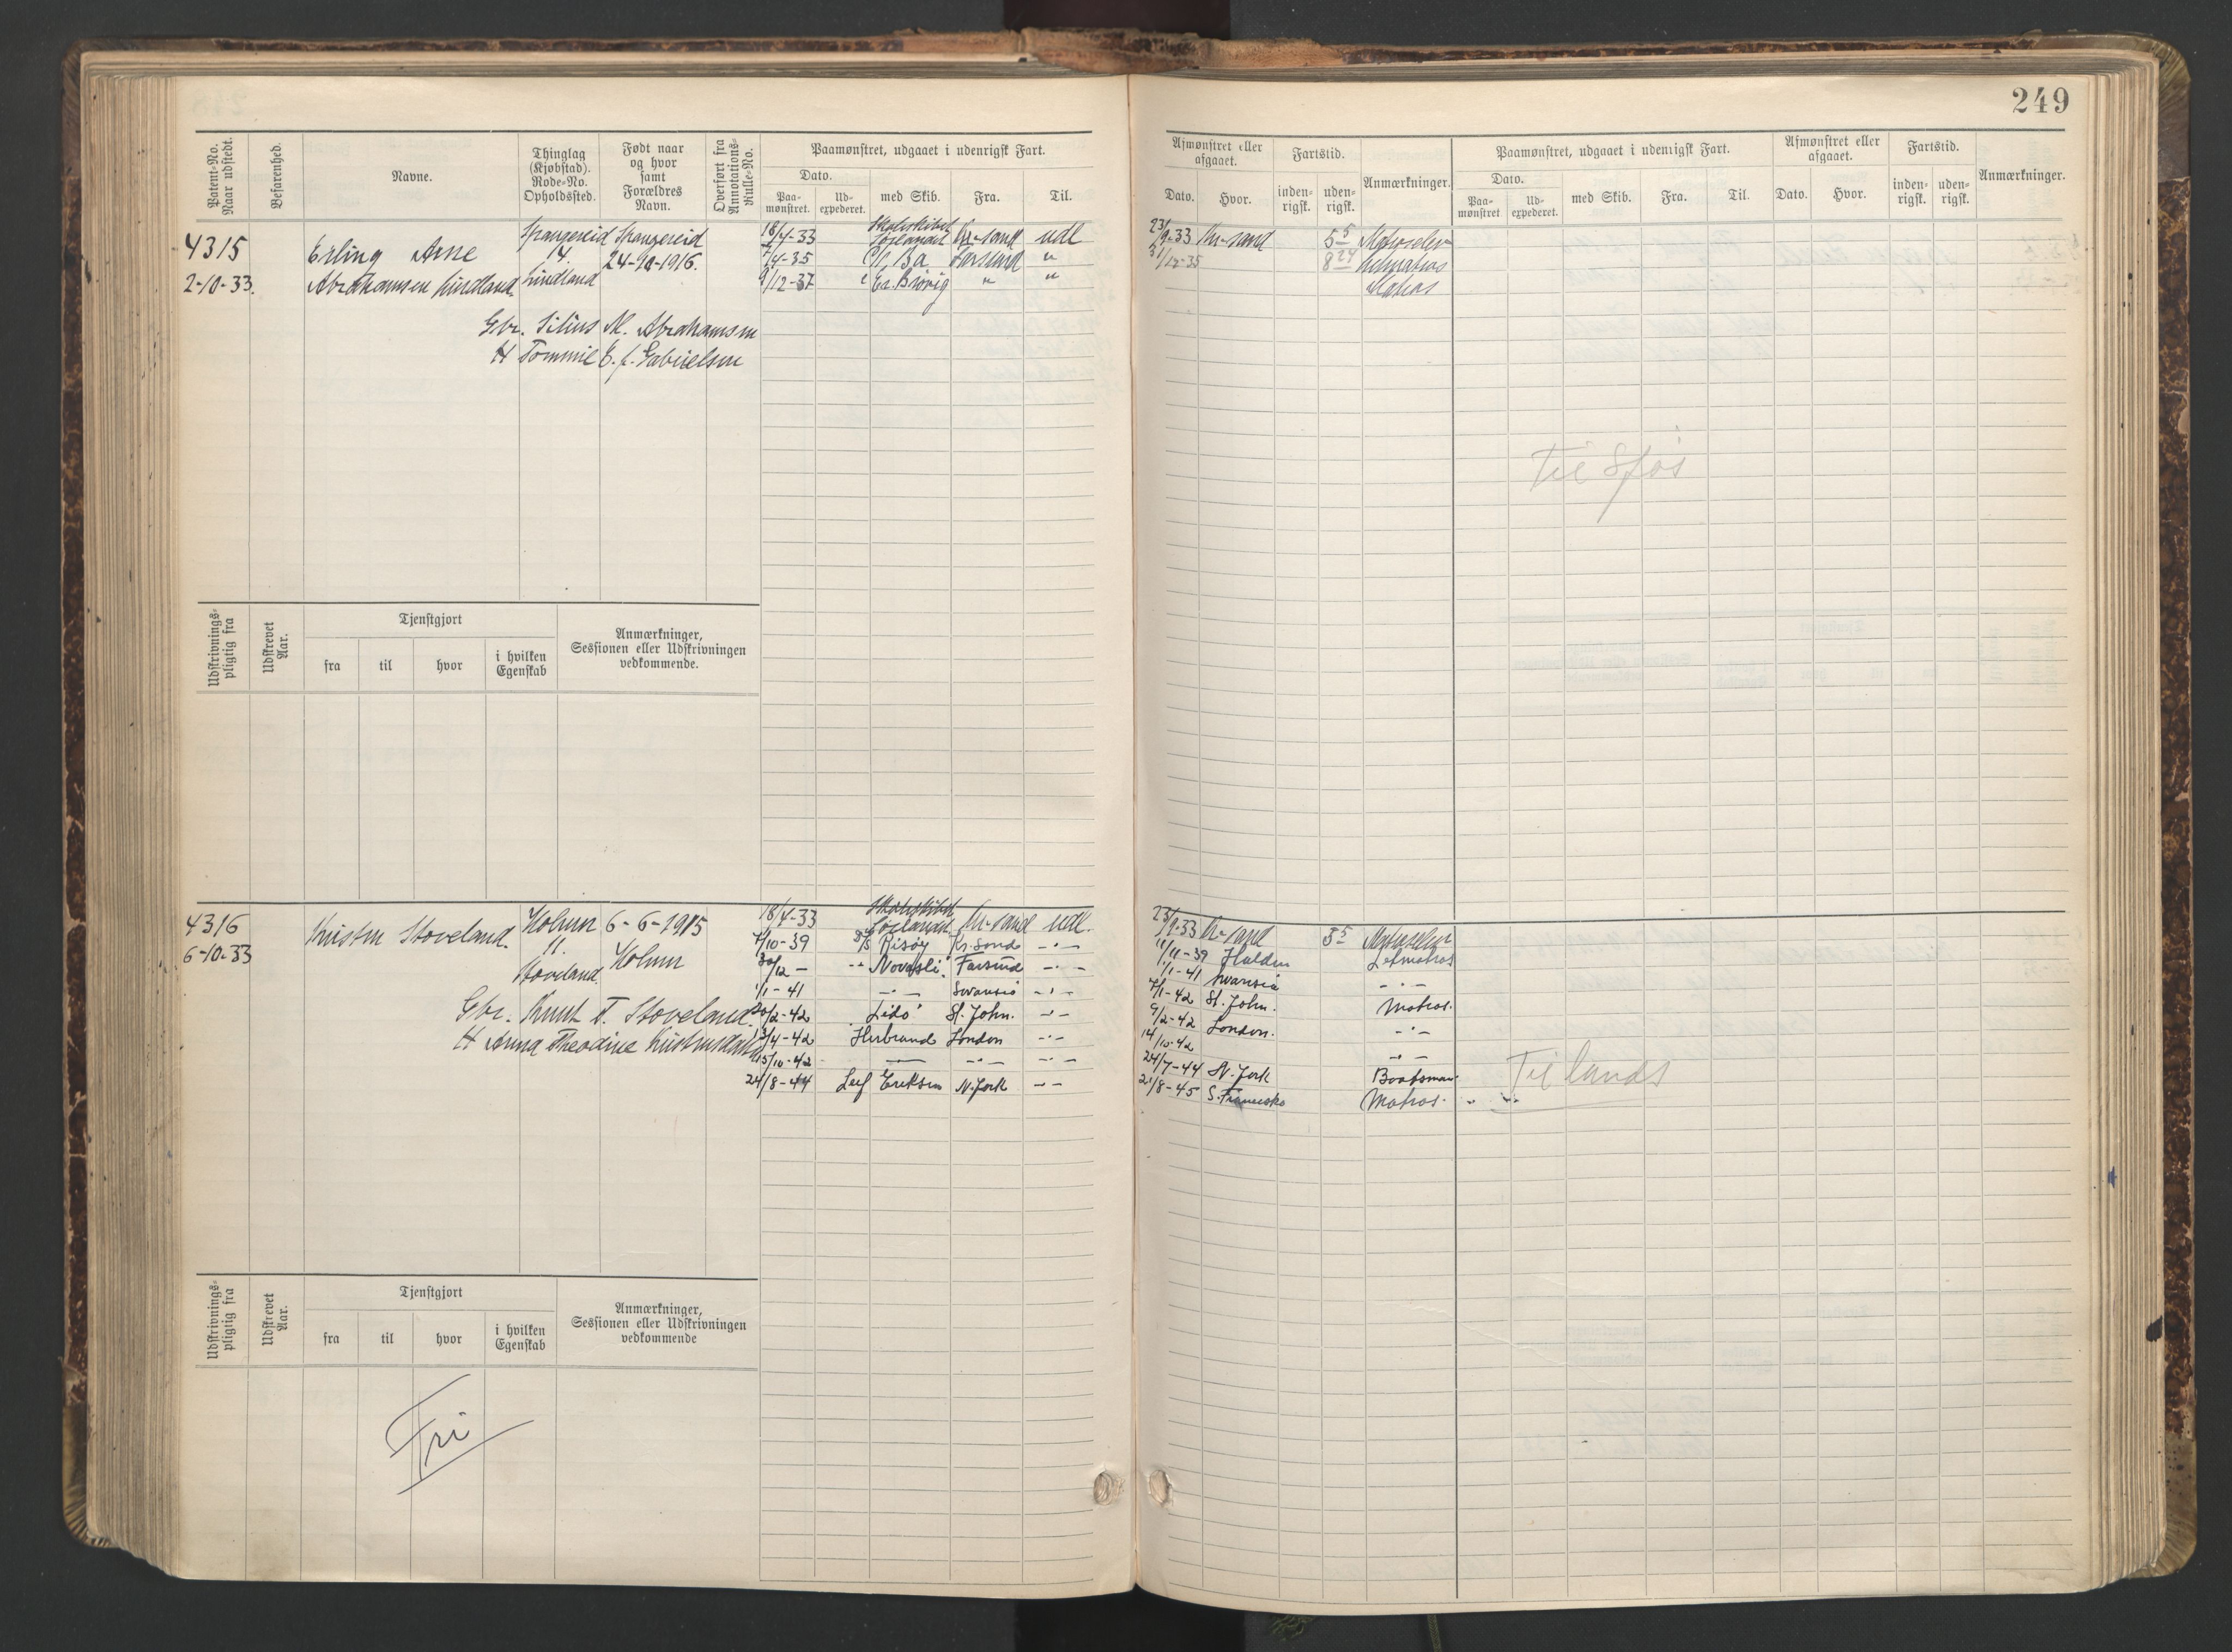 249
Patent-No. Naar udstedt.
Befarenhed.
Navne.
Thinglag (Kjøbstad). Rode-No. Opholdssted.
Født naar og hvor samt Forældres Navn.
Overført fra Annotations-Rulle-No.
Paamønstret, udgaaet i udenrigsk Fart.
Dato.
Paa-mønstret.
Ud-expederet.
med Skib.
Fra.
Til.
Afmønstret eller afgaaet.
Dato.
Hvor.
Fartstid.
inden-rigsk.
uden-rigsk.
Anmærkninger.
Paamønstret, udgaaet i udenrigsk Fart.
Dato.
Paa-mønstret
Ud-expederet.
med Skib.
Fra.
Til.
Afmønstret eller afgaaet.
Dato.
Hvor.
Fartstid.
inden-rigsk.
uden-rigsk.
Anmærkninger.
4315
2-10-33.
Erling Arne
Abrahamsen Lindland.
Spangereid
14.
Lindland
Spangereid
24-10-1916.
Gbr. Silius M. Abrahamsen
H Tommie E. f. Gabrielsen
18/4-33 Skoleskibet Sørlandet Kr-sand udl
23/9-33 Kr-sand 5 5 Matroselev
7/4-35 Farsund "
31/12-35 8 24 Letmatros
9/12-37 Br.Brøvig " "
Matros
Til Sjøs
Udskrivnings-pligtig fra
Udskrevet Aar.
Tjenstgjort
fra
til
hvor
i hvilken Egenskab
Anmærkninger, Sessionen eller Udskrivningen vedkommende.
4316
6-10-33
Kristen Stoveland.
Holum
11.
Stoveland.
6-6-1915
Holum
Gbr. Knut T. Stoveland.
H Anna Theodine Kristensdatter
18/4-33 Skoleskibet Sørlandet Kr-sand udl.
23/9-33 Kr-sand 5 5 Matroselev
7/10-39 D/S Risøy Kr.sand -"-
11/11-39 Halden Letmatros
30/12 - -" Novasli. Farsund -"-
1/1-41 Swansea -"-
1/1-41 -"- Swansea -"-
7/1-42 St. John. Matros.
20/2-42 Lido St. John. -"-
9/2-42 London. -"-
13/4-42 Herbrand London -"-
14/10-42 -"-
15/10-42 -"- -"- -"-
24/7-44 N. York Baatsman
24/8-44 Leif Eriksen N.York -"-
2/8-45 S. Francisko Matros.
Til lands
Udskrivnings-pligtig fra
Udskrevet Aar.
Tjenstgjort
fra
til
hvor
i hvilken Egenskab
Anmærkninger, Sessionen eller Udskrivningen vedkommende
Fri